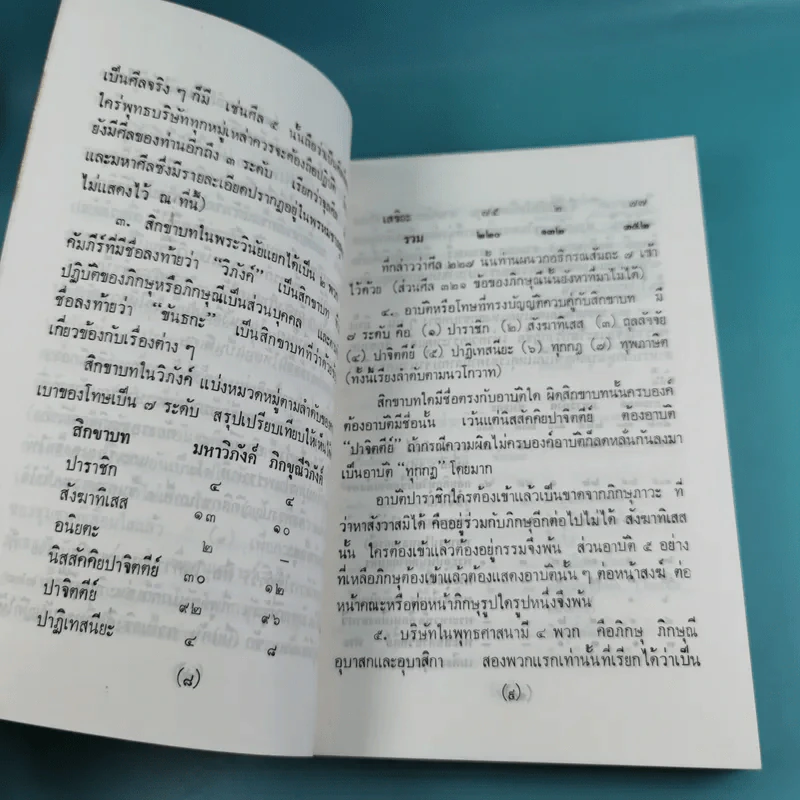 เป็นศีลจริง ๆ ก็มี เช่นศีล ๕ นั้นถือว่าเป็น
ใคร่พุทธบริษัททุกหมู่เหล่าควรจะต้องถือปฏิบัติ
ยังมีศีลของท่านอีกถึง ๓ ระดับ เรียกว่าจุลศีล
และมหาศีลซึ่งมีรายละเอียดปรากฏอยู่ในพรหมชาลสูตร
ไม่แสดงไว้ ณ ที่นี้)
๓. สิกขาบทในพระวินัยแยกได้เป็น ๒ พวก
คัมภีร์ที่มีชื่อลงท้ายว่า “วิภังค์” เป็นสิกขาบท
ปฏิบัติของภิกษุหรือภิกษุณีเป็นส่วนบุคคล และ
ชื่อลงท้ายว่า “ขันธกะ” เป็นสิกขาบทที่ว่าด้วย
เกี่ยวข้องกับเรื่องต่าง ๆ
สิกขาบทในวิภังค์ แบ่งหมวดหมู่ตามลำดับของ
เบาของโทษเป็น ๗ ระดับ สรุปเปรียบเทียบให้เห็นได้
สิกขาบท มหาวิภังค์ ภิกขุณีวิภังค์
ปาราชิก ๔ ๔
สังฆาทิเสส ๑๓ ๑๐
อนิยตะ ๒ –
นิสสัคคิยปาจิตตีย์ ๓๐ ๑๒
ปาจิตตีย์ ๙๒ ๙๖
ปาฏิเทสนียะ ๔ ๘
(๘)
เสขิยะ ๗๕ ๒ ๗๗
รวม ๒๒๐ ๑๓๒ ๓๕๒
ที่กล่าวว่าศีล ๒๒๗ นั้นท่านผนวกอธิกรณสมถะ ๗ เข้า
ไว้ด้วย (ส่วนศีล ๓๒๑ ข้อของภิกษุณีนั้นยังหาที่มาไม่ได้)
๔. อาบัติหรือโทษที่ทรงบัญญัติควบคู่กับสิกขาบท มี
๗ ระดับ คือ (๑) ปาราชิก (๒) สังฆาทิเสส (๓) ถุลลัจจัย
(๔) ปาจิตตีย์ (๕) ปาฏิเทสนียะ (๖) ทุกกฎ (๗) ทุพภาษิต
(ทั้งนี้เรียงลำดับตามนวโกวาท)
สิกขาบทใดมีชื่อตรงกับอาบัติใด ผิดสิกขาบทนั้นครบองค์
ต้องอาบัติมีชื่อนั้น เว้นแต่นิสสัคคิยปาจิตตีย์ ต้องอาบัติ
“ปาจิตตีย์” ถ้ากรณีความผิดไม่ครบองค์อาบัติก็ลดหลั่นกันลงมา
เป็นอาบัติ “ทุกกฎ” โดยมาก
อาบัติปาราชิกใครต้องเข้าแล้วเป็นขาดจากภิกษุภาวะ ที่
ว่าหาสังวาสมิได้ คืออยู่ร่วมกับภิกษุอีกต่อไปไม่ได้ สังฆาทิเสส
นั้น ใครต้องเข้าแล้วต้องอยู่กรรมจึงพ้น ส่วนอาบัติ ๕ อย่าง
ที่เหลือภิกษุต้องเข้าแล้วต้องแสดงอาบัตินั้น ๆ ต่อหน้าสงฆ์ ต่อ
หน้าคณะหรือต่อหน้าภิกษุรูปใดรูปหนึ่งจึงพ้น
๕. บริษัทในพุทธศาสนามี ๔ พวก คือภิกษุ ภิกษุณี
อุบาสกและอุบาสิกา สองพวกแรกเท่านั้นที่เรียกได้ว่าเป็น
(๙)